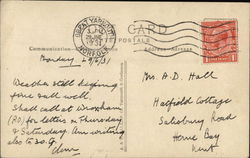 GREAT YARMOUTH
NORFOLK
1931
CARD
POSTALE
Communication
Address
Monday 29/6/31
Mr. A. D. Hall
Weather still keeping
fine and well.
Hatfield Cottage
Shall call at Wroxham
Salisbury Road
(P.O.) for letters on Thursday
Herne Bay
& Saturday. Am writing
Kent
also to